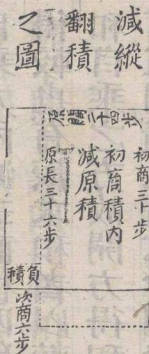 減縱
翻積
之圖
初商三十步
初商積內
減原積
原長三十六步
原闊二十四步
負積
次商六步